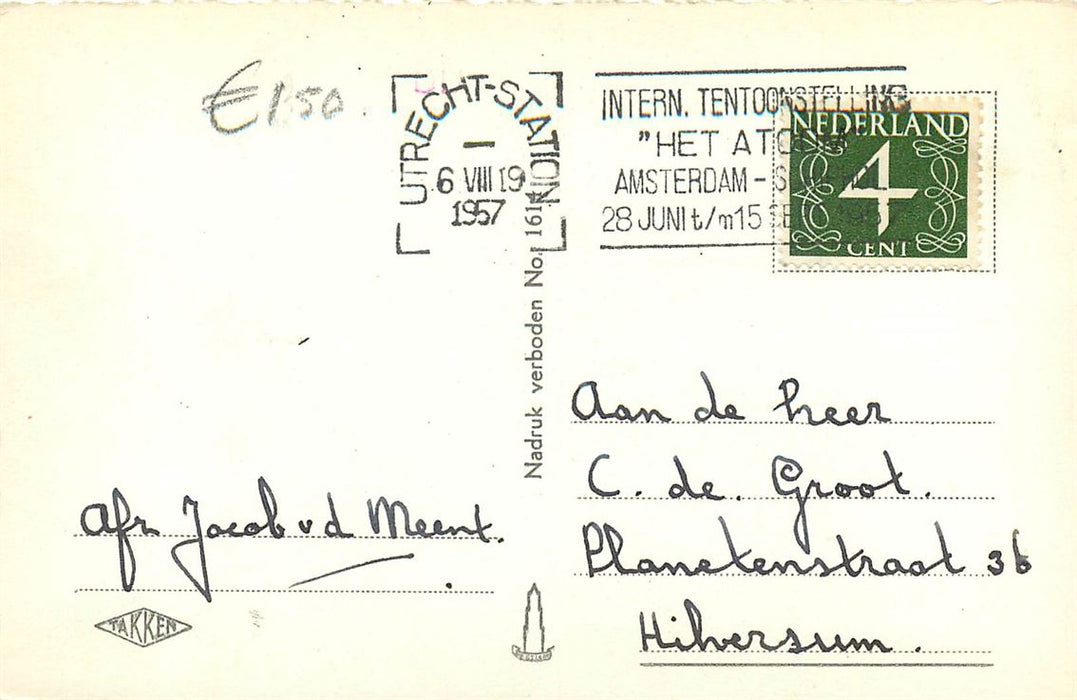 € 1.50
UTRECHT-STATION
6 VIII 19
1957
INTERN. TENTOONSTELLING
"HET ATOOM"
AMSTERDAM -
28 JUNI t/m 15
NEDERLAND
4
CENT
Nadruk verboden No. 1614
Aan de heer
C. de. Groot.
Planetenstraat 36
Hilversum.
Afz Jacob v d Meent.
TAKKEN